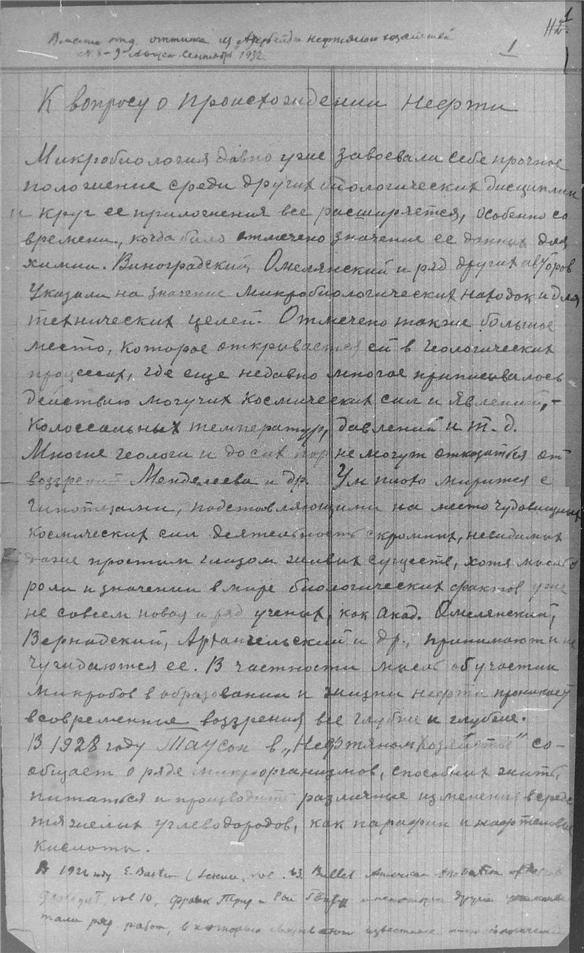 Вместо отд. оттиска из Азербейдж нефтяного хозяйства
№ 8-9 Август Сентябрь 1932
1
К вопросу о происхождении нефти
Микробиология давно уже завоевала себе прочное
положение среди других биологических дисциплин
и круг ее приложения все расширяется, особенно со
времени, когда было отмечено значение ее данных для
химии. Виноградский, Омелянский и ряд других авторов
указали на значение микробиологических находок и для
технических целей. Отмечено также большое
место, которое открывается ей в геологических
процессах, где еще недавно многое приписывалось
действию могучих космических сил и явлений,-
колоссальных температур, давлений и т.д.
Многие геологи и до сих пор не могут отказаться от
воззрений Менделеева и др. Ум плохо мирится с
гипотезами, подставляющими на место чудовищных
космических сил деятельность скромных, невидимых
даже простым глазом живых существ, хотя мысль о
роли и значении в мире биологических фактов уже
не совсем новая и ряд ученых, как Акад. Омелянский,
Вернадский, Архангельский и др., принимают и не
чуждаются ее. В частности мысль об участии
микробов в образовании и жизни нефти проникает
в современные воззрения все глубже и глубже.
В 1928 году Таусон в „Нефтяном Хозяйстве" со-
общает о ряде микроорганизмов, способных жить,
питаться и производить различные изменения в среде
тяжелых углеводородов, как парафин и нафтеновые
кислоты.
В 1926 году E. Bastin (vol. 63, Bullet American
vol 10, и некоторые другие
ряд работ, в которых известное